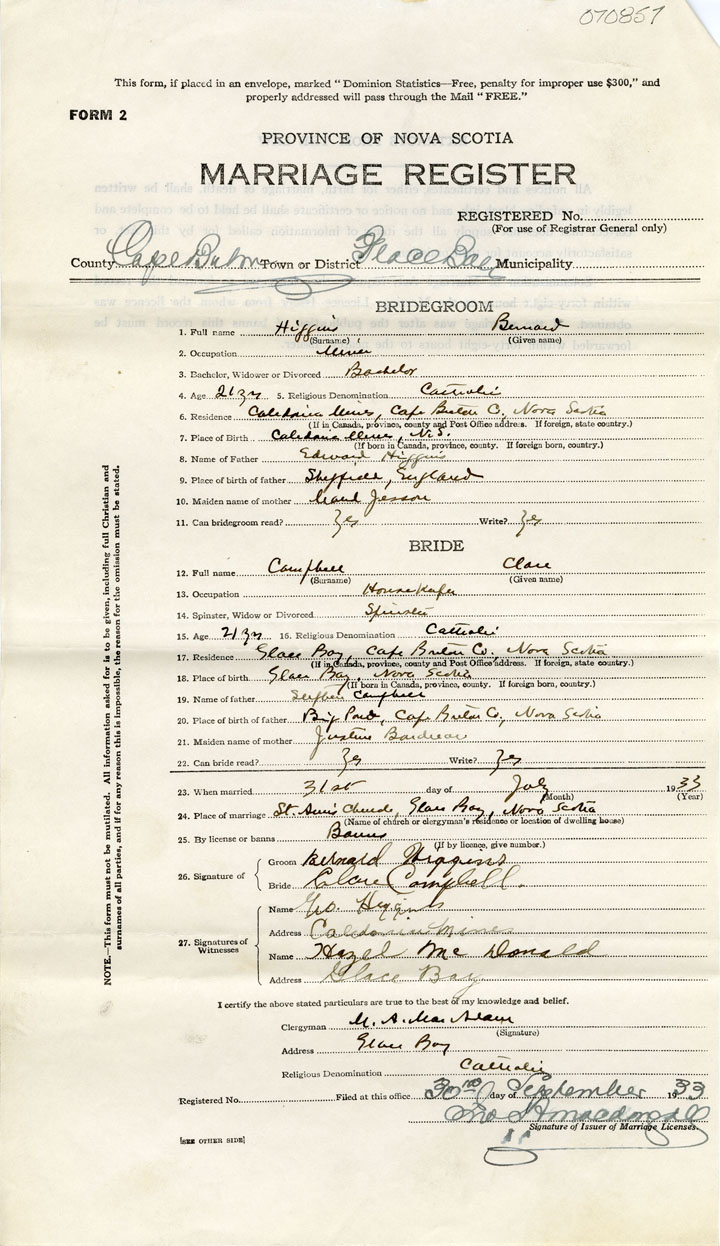 070857
This form, if placed in an envelope, marked “Dominion Statistics—Free, penalty for improper use $300,” and
properly addressed will pass through the Mail “FREE.”
FORM 2
PROVINCE OF NOVA SCOTIA
MARRIAGE REGISTER
REGISTERED No.
(For use of Registrar General only)
County Cape Breton Town or District Glace Bay Municipality
BRIDEGROOM
1. Full name Higgins Bernard
(Surname) (Given name)
2. Occupation Miner
3. Bachelor, Widower or Divorced Bachelor
4. Age 21 yrs 5. Religious Denomination Catholic
6. Residence Caledonia Mines, Cape Breton Co, Nova Scotia
(If in Canada, province, county and Post Office address. If foreign, state country.)
7. Place of Birth Caledonia Mines, N.S.
(If born in Canada, province, county. If foreign born, country.)
8. Name of Father Edward Higgins
9. Place of birth of father Sheffield, England
10. Maiden name of mother Maud Jesson
11. Can bridegroom read? Yes Write? Yes
BRIDE
12. Full name Campbell Clare
(Surname) (Given name)
13. Occupation Housekeeper
14. Spinster, Widow or Divorced Spinster
15. Age 21 yrs 16. Religious Denomination Catholic
17. Residence Glace Bay, Cape Breton Co, Nova Scotia
(If in Canada, province, county and Post Office address. If foreign, state country.)
18. Place of birth Glace Bay, Nova Scotia
(If born in Canada, province, county. If foreign born, country.)
19. Name of father Stephen Campbell
20. Place of birth of father Big Pond, Cape Breton Co, Nova Scotia
21. Maiden name of mother Justine Boudreau
22. Can bride read? Yes Write? Yes
23. When married 31st day of July 1933
(Month) (Year)
24. Place of marriage St Ann's Church, Glace Bay, Nova Scotia
(Name of church or clergyman's residence or location of dwelling house)
25. By license or banns Banns
(If by licence, give number.)
26. Signature of
Groom Bernard Higgins
Bride Clare Campbell.
27. Signatures of Witnesses
Name Geo. Higgins
Address Caledonia Mines
Name Hazel McDonald
Address Glace Bay
I certify the above stated particulars are true to the best of my knowledge and belief.
Clergyman M. A. MacAdam
(Signature)
Address Glace Bay
Religious Denomination Catholic
Registered No. Filed at this office 30nd day of September 1933
Macdougall
Signature of Issuer of Marriage Licenses.
[SEE OTHER SIDE]
NOTE.—This form must not be mutilated. All information asked for is to be given, including full Christian and
surnames of all parties, and if for any reason this is impossible, the reason for the omission must be stated.